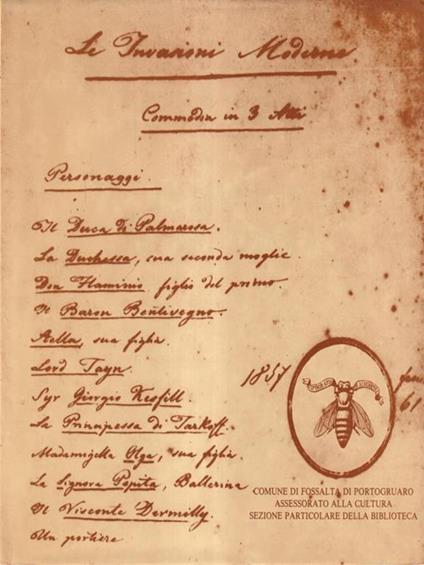 Le Invasioni Moderne
Commedia in 3 Atti
Personaggi.
Il Duca di Palmarosa.
La Duchessa, sua seconda moglie.
Don Flaminio figlio del primo.
Il Baron Bentivegno.
Aella, sua figlia.
Lord Tayn.
Syr Giorgio Kesfill.
La Principessa di Tarkoff.
Madamigella Olga, sua figlia.
La Signora Pepita, Ballerina
Il Visconte Dermilly.
Un portiere
1857
61
COMUNE DI FOSSALTA DI PORTOGRUARO
ASSESSORATO ALLA CULTURA
SEZIONE PARTICOLARE DELLA BIBLIOTECA